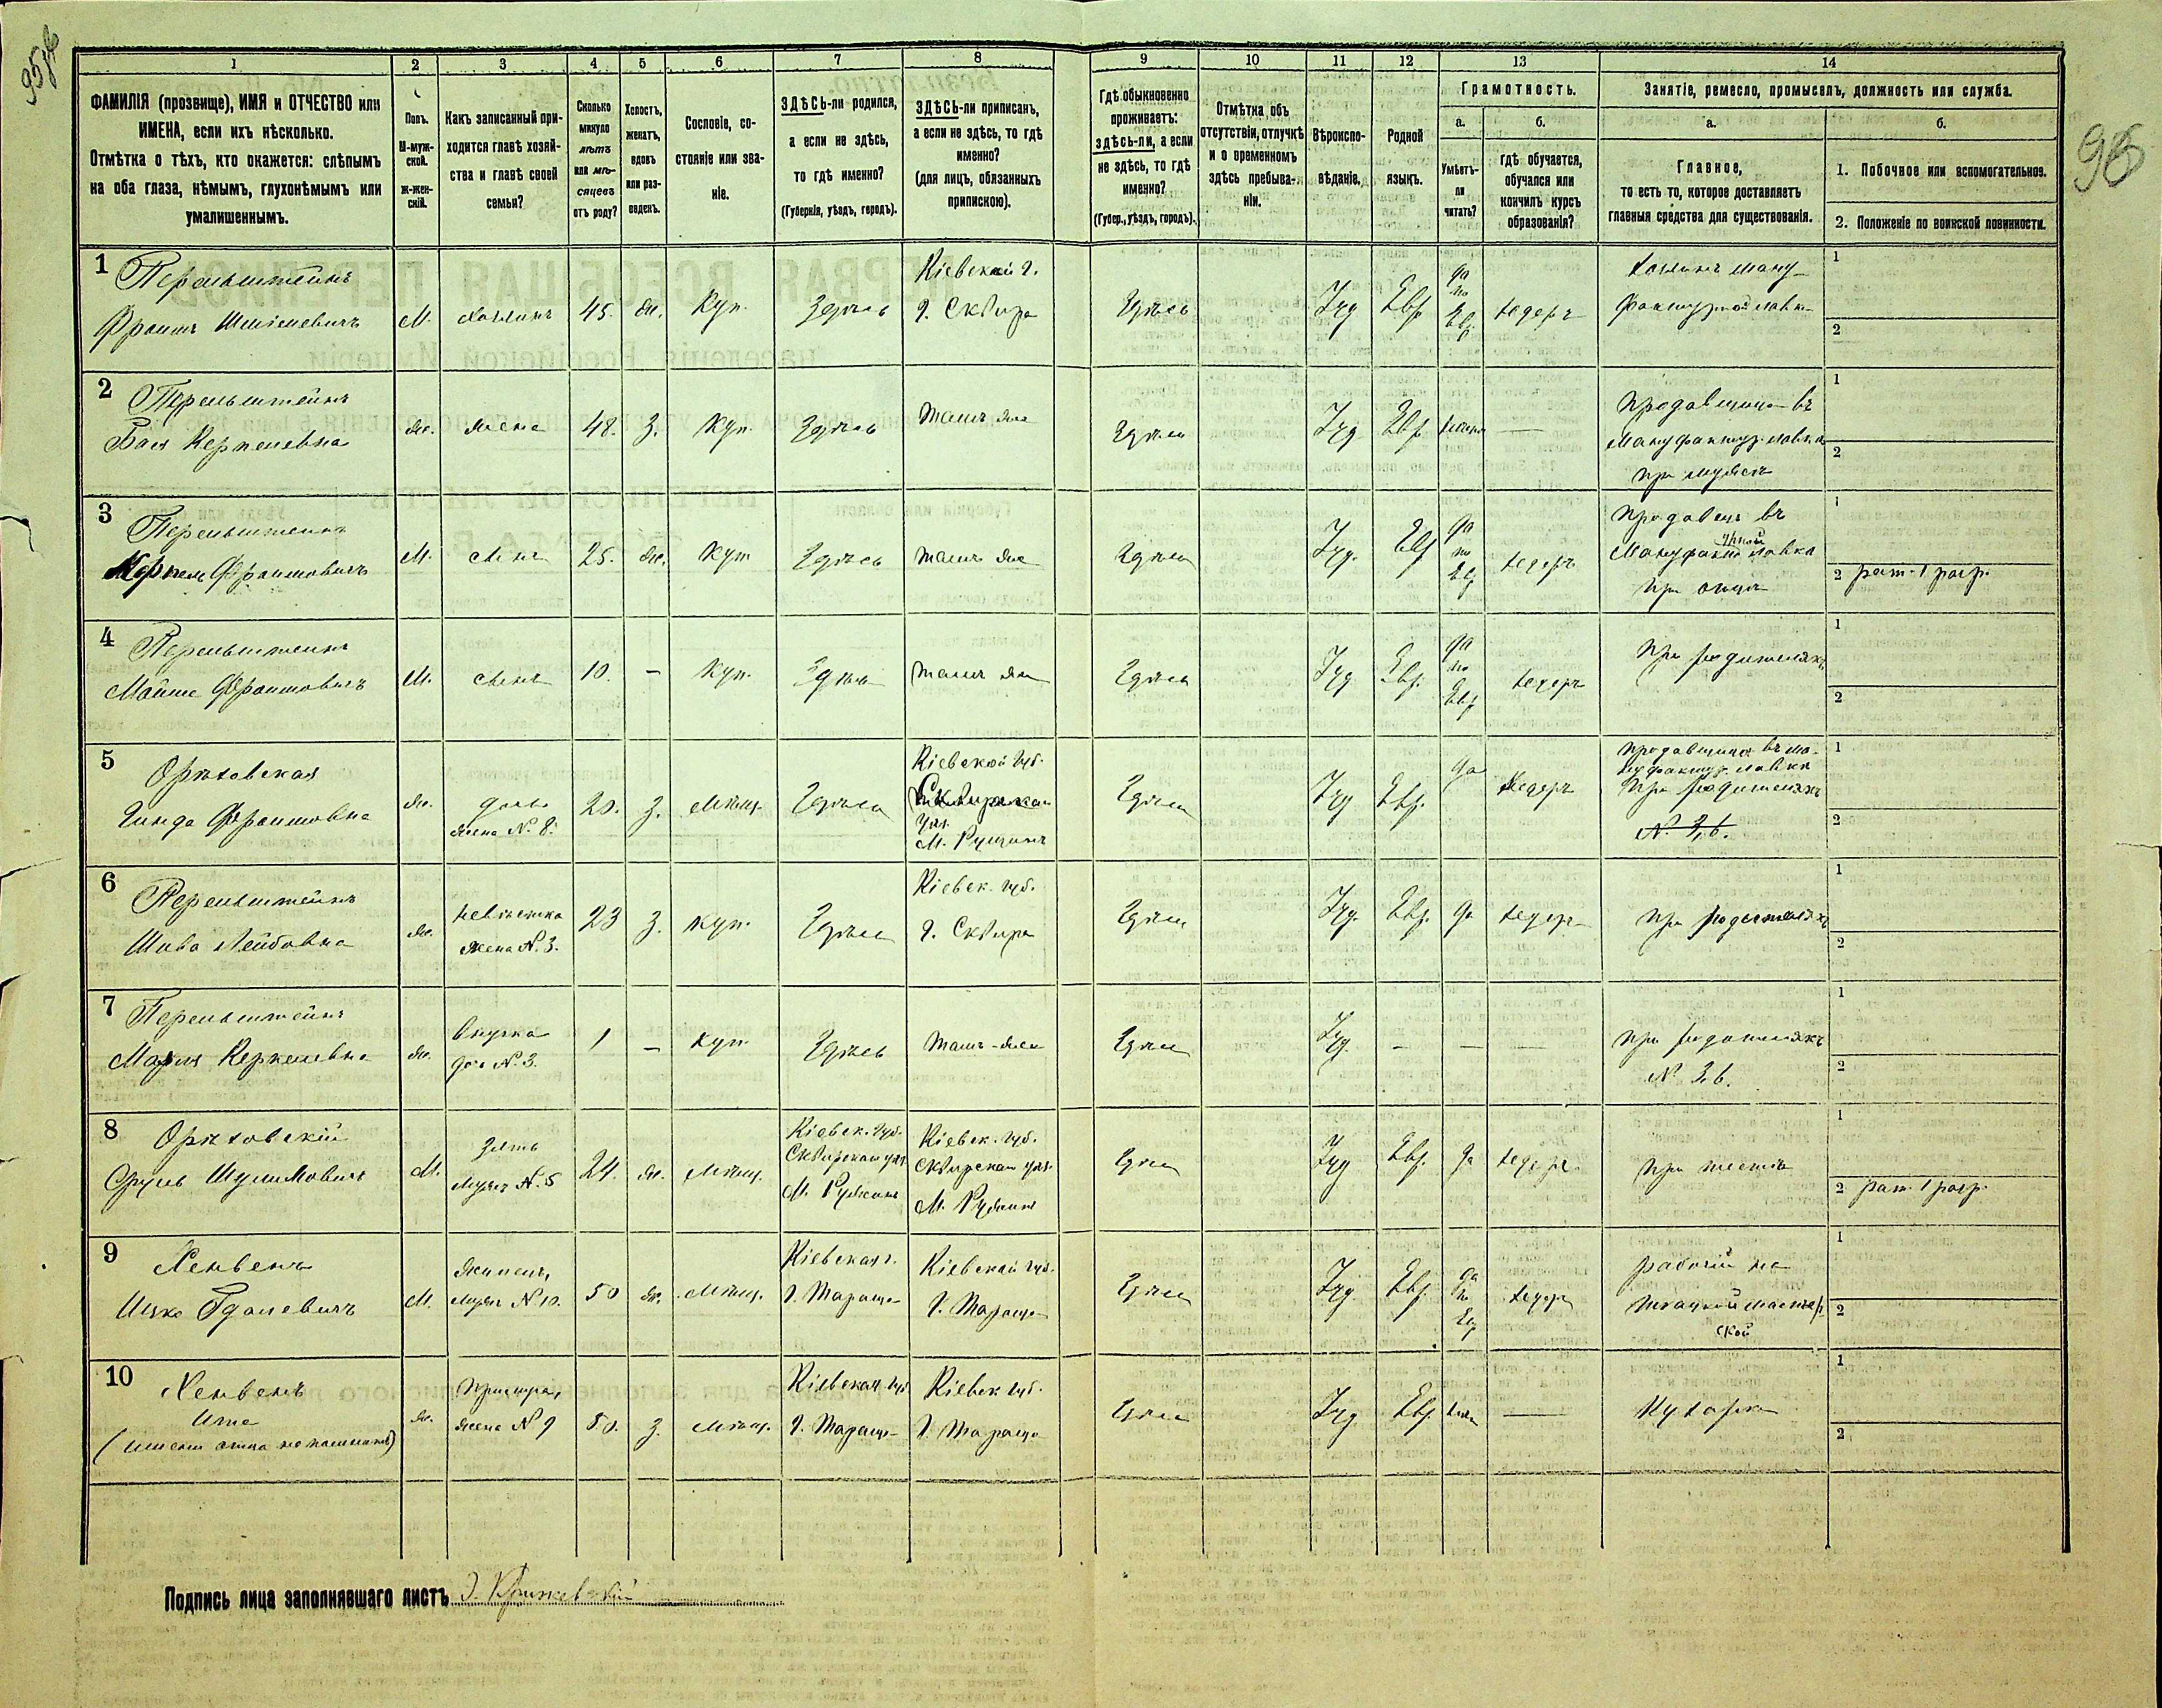 95 об
96
1 2 3 4 5 6 7 8 9 10 11 12 13 14
ФАМИЛІЯ (прозвище), ИМЯ и ОТЧЕСТВО или
ИМЕНА, если ихъ нѣсколько.
Отмѣтка о тѣхъ, кто окажется: слѣпымъ
на оба глаза, нѣмымъ, глухонѣмымъ или
умалишеннымъ.
Полъ.
М-муж-
ской.
Ж-жен-
скій.
Какъ записанный при-
ходится главѣ хозяй-
ства и главѣ своей
семьи?
Сколько
минуло
лѣтъ
или мѣ-
сяцевъ
отъ роду?
Холостъ,
женатъ,
вдовъ
или раз-
веденъ.
Сословіе, со-
стояніе или зва-
ніе.
ЗДѢСЬ-ли родился,
а если не здѣсь,
то гдѣ именно?
(Губернія, уѣздъ, городъ).
ЗДѢСЬ-ли приписанъ,
а если не здѣсь, то гдѣ
именно?
(для лицъ, обязанныхъ
припискою).
Гдѣ обыкновенно
проживаетъ:
здѣсь-ли, а если
не здѣсь, то гдѣ
именно?
(Губер., уѣздъ, городъ).
Отмѣтка объ
отсутствіи, отлучкѣ
и о временномъ
здѣсь пребыва-
ніи.
Вѣроиспо-
вѣданіе.
Родной
языкъ.
Грамотность.
а.
Умѣетъ-
ли
читать?
б.
гдѣ обучается,
обучался или
кончилъ курсъ
образованія?
Занятіе, ремесло, промыселъ, должность или служба.
а.
Главное,
то есть то, которое доставляетъ
главныя средства для существованія.
б.
1. Побочное или вспомогательное.
2. Положеніе по воинской повинности.
1 Перельштейнъ
М. хозяинъ 45. Ж. Куп. Здѣсь
Кіевской г.
г. Сквира
Здѣсь Іуд Евр
да
по
Евр
хедеръ
хозяинъ ману-
фактурной лавки
1
2
2 Перельштейнъ
Бася Керпелевна
Ж. жена 48. З. Куп. Здѣсь тамъ же Здѣсь Іуд Евр —
продавщица въ
мануфактур. лавкѣ
при мужѣ
1
2
3 Перельштейнъ
Керпель Фроимовичъ
М. сынъ 25. Ж. Куп Здѣсь тамъ же Здѣсь Іуд. Евр
да
по
Евр
хедеръ
продавецъ въ
мануфактурной лавкѣ
при отцѣ
1
2 рат. 1 разр.
4 Перельштейнъ
Мойше Фроимовичъ
М. сынъ 10. — Куп. Здѣсь тамъ же Здѣсь Іуд Евр.
да
по
Евр
хедеръ
при родителяхъ
1
2
5 Орѣховская
Гинда Фроимовна
Ж. дочь
жена № 8.
20. З. Мѣщ. Здѣсь
Кіевской губ.
Сквирскаго
уѣз.
м. Ружинъ
Здѣсь Іуд Евр. да хедеръ
продавщица въ ма-
нуфактур. лавкѣ
при родителяхъ
№ 3, 6.
1
2
6 Перельштейнъ
Шива Лейбовна
Ж. невѣстка
жена № 3.
23 З. Куп. Здѣсь
Кіевск. губ.
г. Сквира
Здѣсь Іуд. Евр. да хедеръ при родителяхъ
1
2
7 Перельштейнъ
Маріа Керпелевна
Ж. внучка
дочь № 3.
1 — Куп. Здѣсь тамъ-же Здѣсь Іуд. — — —
при родителяхъ
№ 3, 6.
1
2
8 Орѣховскій
Сруль Шулимовичъ
М. зять
мужъ № 5
24. Ж. Мѣщ.
Кіевск. губ.
Сквирскаго уѣз.
м. Ружинъ
Кіевск. губ.
Сквирскаго уѣз.
м. Ружинъ
Здѣсь Іуд Евр. да хедеръ при тестѣ
1
2 рат. 1 разр.
9 Хенвенъ
Ицко Гдалевичъ
М. жилецъ,
мужъ № 10.
50 Ж. Мѣщ.
Кіевская г.
г. Тараща
Кіевской губ.
г. Тараща
Здѣсь Іуд Евр.
да
по
Евр
хедеръ
рабочій на
ткацкой мастер-
ской
1
2
10 Хенвенъ
Ита
(имени отца не помнитъ)
Ж.
жена № 9
50. З. Мѣщ.
Кіевская губ
г. Тараща
Кіевск губ.
г. Тараща
Здѣсь Іуд. Евр. —
Кухарка
1
2
Подпись лица заполнявшаго листъ